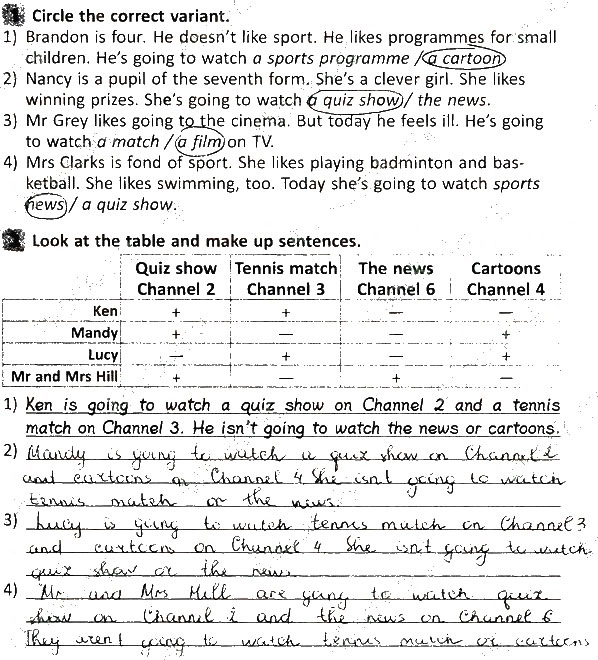 1 Circle the correct variant.
1) Brandon is four. He doesn't like sport. He likes programmes for small
children. He's going to watch a sports programme / a cartoon
2) Nancy is a pupil of the seventh form. She's a clever girl. She likes
winning prizes. She's going to watch a quiz show / the news.
3) Mr Grey likes going to the cinema. But today he feels ill. He's going
to watch a match / a film on TV.
4) Mrs Clarks is fond of sport. She likes playing badminton and bas-
ketball. She likes swimming, too. Today she's going to watch sports
news / a quiz show.
Look at the table and make up sentences.
Quiz show Tennis match The news Cartoons
Channel 2 Channel 3 Channel 6 Channel 4
Ken + + — —
Mandy + — — +
Lucy — + — +
Mr and Mrs Hill + — + —
1) Ken is going to watch a quiz show on Channel 2 and a tennis
match on Channel 3. He isn't going to watch the news or cartoons.
2) Mandy is going to watch a quiz show on Channel 2
and cartoons on Channel 4 She isnt going to watch
tennis match or the news.
3) Lucy is going to watch tennis match on Channel 3
and cartoons on Channel 4 She isn't going to watch
quiz show or the news
4) Mr and Mrs Hill are going to watch quiz
show on Channel 2 and the news on Channel 6
They aren't going to watch tennis match or cartoons